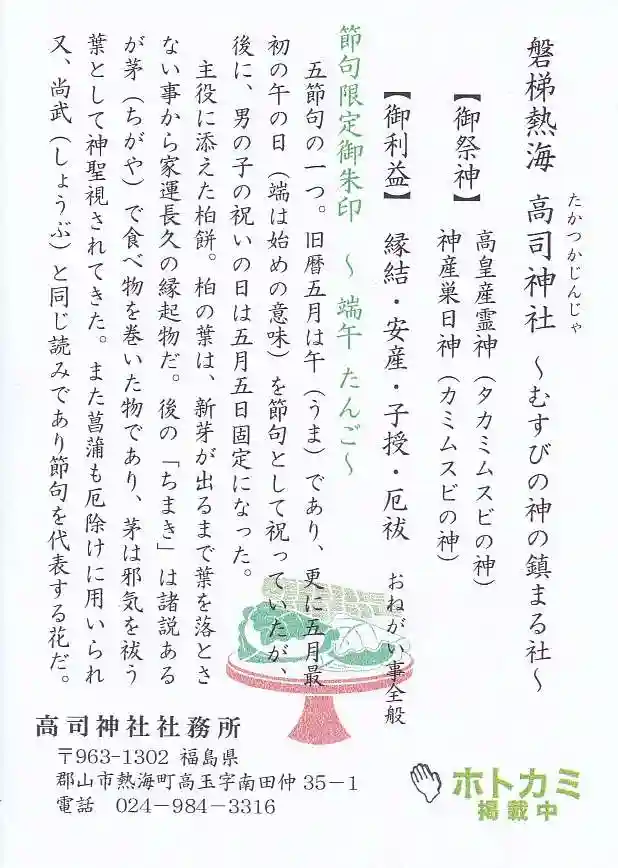 磐梯熱海 高司神社 ～むすびの神の鎮まる社～
たかつかじんじゃ
【御祭神】
高皇産霊神（タカミムスビの神）
神産巣日神（カミムスビの神）
【御利益】 縁結・安産・子授・厄祓 おねがい事全般
節句限定御朱印 ～ 端午 たんご～
五節句の一つ。旧暦五月は午（うま）であり、更に五月最
初の午の日（端は始めの意味）を節句として祝っていたが、
後に、男の子の祝いの日は五月五日固定になった。
主役に添えた柏餅。柏の葉は、新芽が出るまで葉を落とさ
ない事から家運長久の縁起物だ。後の「ちまき」は諸説ある
が茅（ちがや）で食べ物を巻いた物であり、茅は邪気を祓う
葉として神聖視されてきた。また菖蒲も厄除けに用いられ
又、尚武（しょうぶ）と同じ読みであり節句を代表する花だ。
高司神社社務所
〒963-1302 福島県
郡山市熱海町高玉字南田仲 35－1
電話 024-984-3316
ホトカミ
掲載中